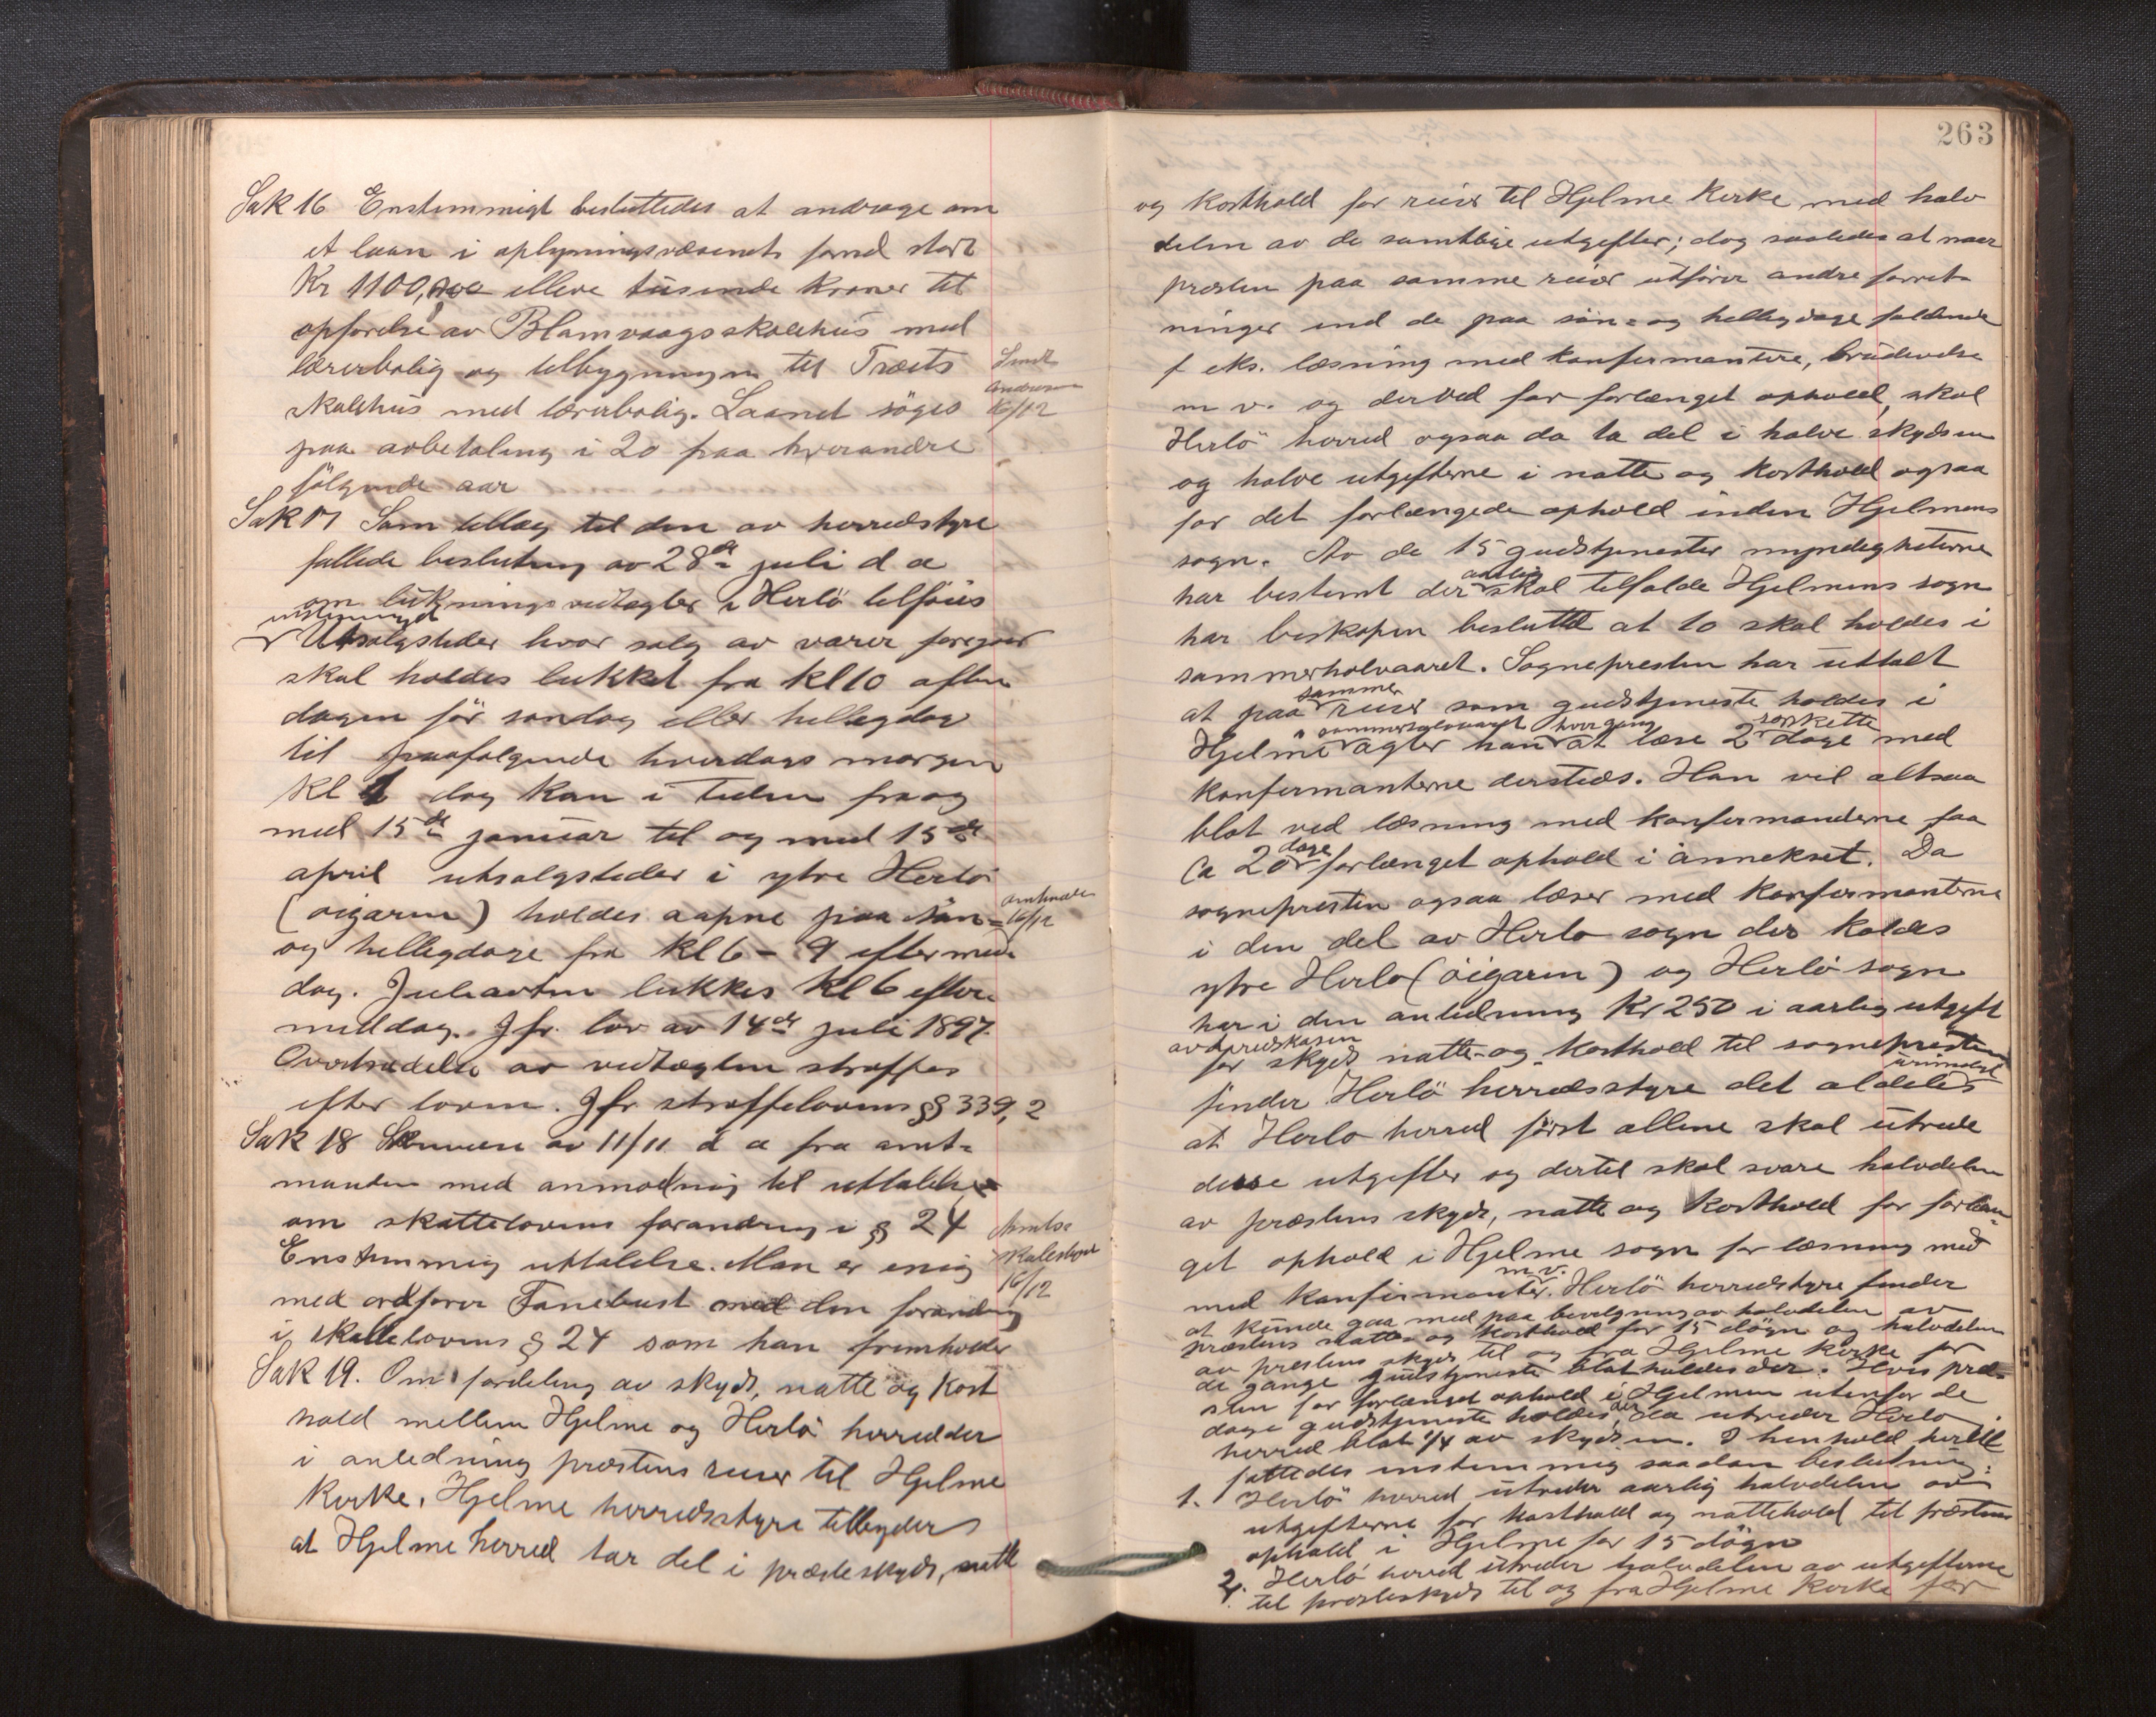 Sak 16 Enstemmigt besluttedes at andrage om
et laan i oplysningsvæsenets fond stort
Kr 1100,000 elleve tusinde kroner til
opførelse av Blamvaags skolehus med
lærerbolig og tilbygningen til Træets
skolehus med lærerbolig. Laanet søges
paa avbetaling i 20 paa hverandre
følgende aar
Sendt
16/12
Sak 17 Som tillæg til den av herredstyre
fattede beslutning av 28de juli d a
om lukningsvedtægter i Herlö tilföies
enstemmigt
Utsalgsteder hvor salg av varer foregaar
skal holdes lukket fra kl 10 aften
dagen før søndag eller helligdag
til paafølgende hverdags morgen
kl dog kan i tiden fra og
med 15de januar til og med 15de
april utsalgsteder i ytre Herlö
(öigaren) holdes aapne paa søn-
og helligdage fra kl 6 - 9 eftermid-
dag. Juleaften lukkes kl 6 efter-
middag. Jfr. lov av 14de juli 1897.
Overtrædelse av vedtægten straffes
efter loven. Jfr straffelovens §§ 339, 2
16/12
Sak 18 Skrivelse av 11/11 d a fra amt-
manden med anmodning til uttalelse
om skattelovens forandring i § 24
Enstemmig uttalelse. Man er enig
med ordfører Fanebust med den forandring
i skattelovens § 24 som han fremholder
Amtsskolestyret
16/12
Sak 19. Om fordeling av skyds, natte og kost
hold mellem Hjelme og Herlö herreder
i anledning præstens reiser til Hjelme
kirke. Hjelme herredsstyre tilbyder
at Hjelme herred tar del i præsteskyds, natte
263
og kosthold for reiser til Hjelme kirke med halv
delen av de samtlige utgifter; dog saaledes at naar
præsten paa samme reiser utfører andre forret-
ninger end de paa søn- og helligdage faldende
f eks. læsning med konfirmantere, brudevielse
m v. og derved faar forlænget ophold, skal
Herlö herred ogsaa da ta del i halve skydsen
og halve utgifterne i natte og kosthold ogsaa
for det forlængede ophold inden Hjelmens
sogn. Av de 15 gudstjenester myndigheterne
har bestemt der aarlig skal tilfalde Hjelmens sogn
har biskopen besluttet at 10 skal holdes i
sommerhalvaaret. Sognepresten har uttalt
at paa samme reiser som gudstjeneste holdes i
Hjelme i sommerhalvaaret agter han hver gang at læse 2 søkette dage med
konfirmanterne dersteds. Han vil altsaa
blot ved læsning med konfirmanderne faa
ca 20 dage forlænget ophold i annekset. Da
sognepresten ogsaa læser med konfirmanterne
i den del av Herlo sogn der kaldes
ytre Herlo (öigaren) og Herlö sogn
har i den anledning Kr 250 i aarlig utgift
av herredskassen
for skyds natte- og kosthold til sognepresten
finder Herlö herredsstyre det aldeles urimeligt
at Herlo herred først allene skal utrede
disse utgifter og dertil skal svare halvdelen
av præstens skyds, natte og kosthold for forlæn-
get ophold i Hjelme sogn for læsning med
med konfirmanter m.v. Herlö herredsstyre finder
at kunde gaa med paa bevilgning av halvdelen av
præstens natte- og kosthold for 15 døgn og halvdelen
av præstens skyds til og fra Hjelme kirke for
de gange gudstjeneste blot holdes der. Hvis præ-
sten faar forlænget ophold i Hjelmen utenfor de
dage gudstjeneste holdes der, da utreder Herlo
herred blot 1/4 av skydsen. I henhold hertil
fattedes enstemmig saadan beslutning:
1. Herlö herred utreder aarlig halvdelen av
utgifterne for kosthold og nattehold til præstens
ophold i Hjelme for 15 døgn
2. Herlö herred utreder halvdelen av utgifterne
til presteskyds til og fra Hjelme kirke for